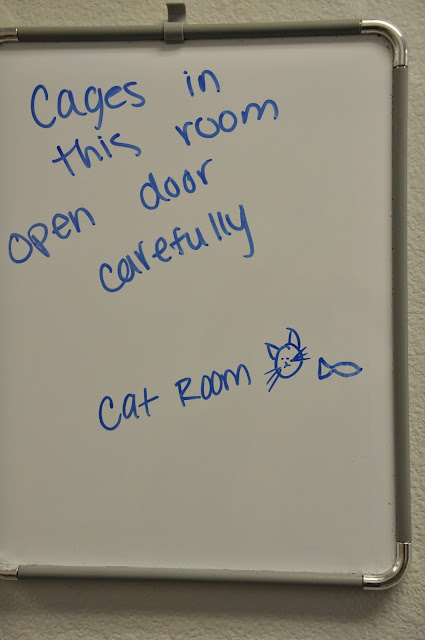 Cages in
this room
open door
carefully
Cat Room